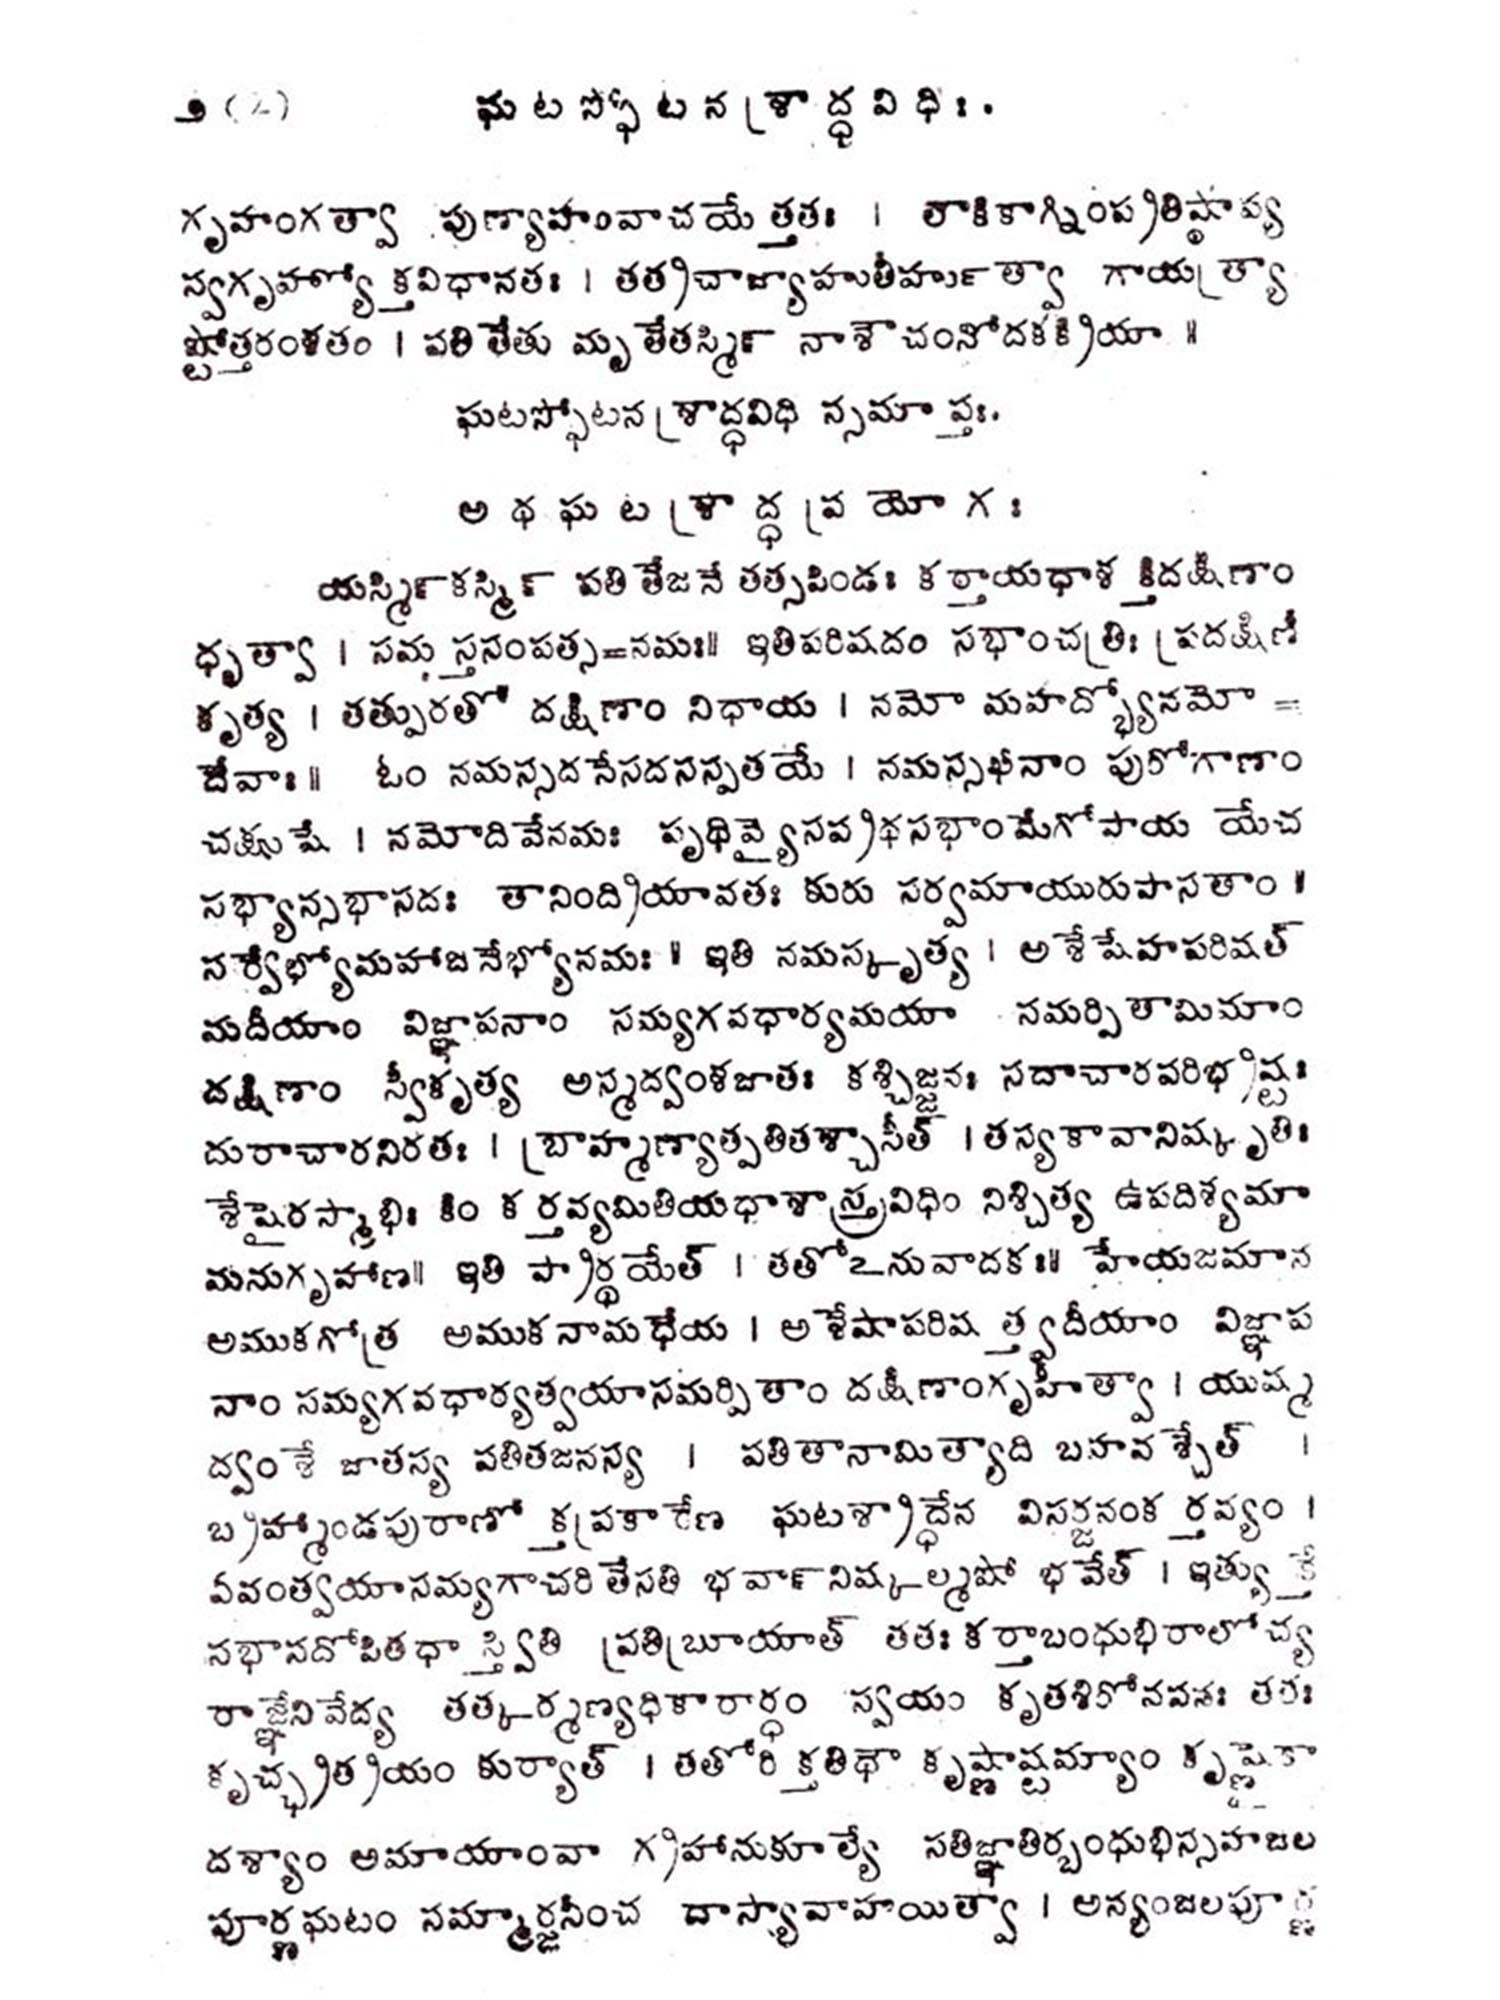 ౨ (2) ఘటస్ఫోటనశ్రాద్ధవిధిః.
గృహంగత్వా పుణ్యాహంవాచయేత్తతః । లౌకికాగ్నింప్రతిష్ఠాప్య
స్వగృహ్యోక్తవిధానతః । తత్రచాజ్యాహుతీర్హుత్వా గాయత్ర్యా
ష్టోత్తరంశతం । పతితేతు మృతేతస్మిన్ నాశౌచంనోదకక్రియా ॥
ఘటస్ఫోటనశ్రాద్ధవిధి స్సమాప్తః.
అథఘటశ్రాద్ధప్రయోగః
యస్మిన్కస్మిన్ పతితేజనే తత్సపిండః కర్తాయధాశక్తిదక్షిణాం
ధృత్వా । సమస్తసంపత్స=నమః॥ ఇతిపరిషదం సభాంచత్రిః ప్రదక్షిణీ
కృత్య । తత్పురతో దక్షిణాం నిధాయ । నమో మహద్భ్యోనమో =
దేవాః॥ ఓం నమస్సదసేసదసస్పతయే । నమస్సఖీనాం పురోగాణాం
చక్షుషే । నమోదివేనమః పృథివ్యైసప్రథసభాంమేగోపాయ యేచ
సభ్యాస్సభాసదః తానింద్రియావతః కురు సర్వమాయురుపాసతాం ॥
సర్వేభ్యోమహాజనేభ్యోనమః ॥ ఇతి నమస్కృత్య । అశేషేహపరిషత్
మదీయాం విజ్ఞాపనాం సమ్యగవధార్యమయా సమర్పితామిమాం
దక్షిణాం స్వీకృత్య అస్మద్వంశజాతః కశ్చిజ్జనః సదాచారపరిభ్రష్టః
దురాచారనిరతః । బ్రాహ్మణ్యాత్పతితశ్చాసీత్ । తస్యకావానిష్కృతిః
శేషైరస్మాభిః కిం కర్తవ్యమితియధాశాస్త్రవిధిం నిశ్చిత్య ఉపదిశ్యమా
మనుగృహాణ॥ ఇతి ప్రార్థయేత్ । తతోఽనువాదకః॥ హేయజమాన
అముకగోత్ర అముకనామధేయ । అశేషాపరిష త్త్వదీయాం విజ్ఞాప
నాం సమ్యగవధార్యత్వయాసమర్పితాం దక్షిణాంగృహీత్వా । యుష్మ
ద్వంశే జాతస్య పతితజనస్య । పతితానామిత్యాది బహవశ్చేత్ ।
బ్రహ్మాండపురాణోక్తప్రకారేణ ఘటశ్రాద్ధేన విసర్జనంకర్తవ్యం ।
ఏవంత్వయాసమ్యగాచరితేసతి భవాన్నిష్కల్మషో భవేత్ । ఇత్యుక్తే
సభాసదోపితధాస్త్వితి ప్రతిబ్రూయాత్ తతః కర్తాబంధుభిరాలోచ్య
రాజ్ఞేనివేద్య తత్కర్మణ్యధికారార్ధం స్వయం కృతశిరోవపనః తతః
కృచ్ఛ్రత్రయం కుర్యాత్ । తతోరిక్తతిథౌ కృష్ణాష్టమ్యాం కృష్ణైకా
దశ్యాం అమాయాంవా గ్రహానుకూల్యే సతిజ్ఞాతిర్బంధుభిస్సహజల
పూర్ణఘటం సమ్మార్జనీంచ దాస్యావాహయిత్వా । అన్యంజలపూర్ణ